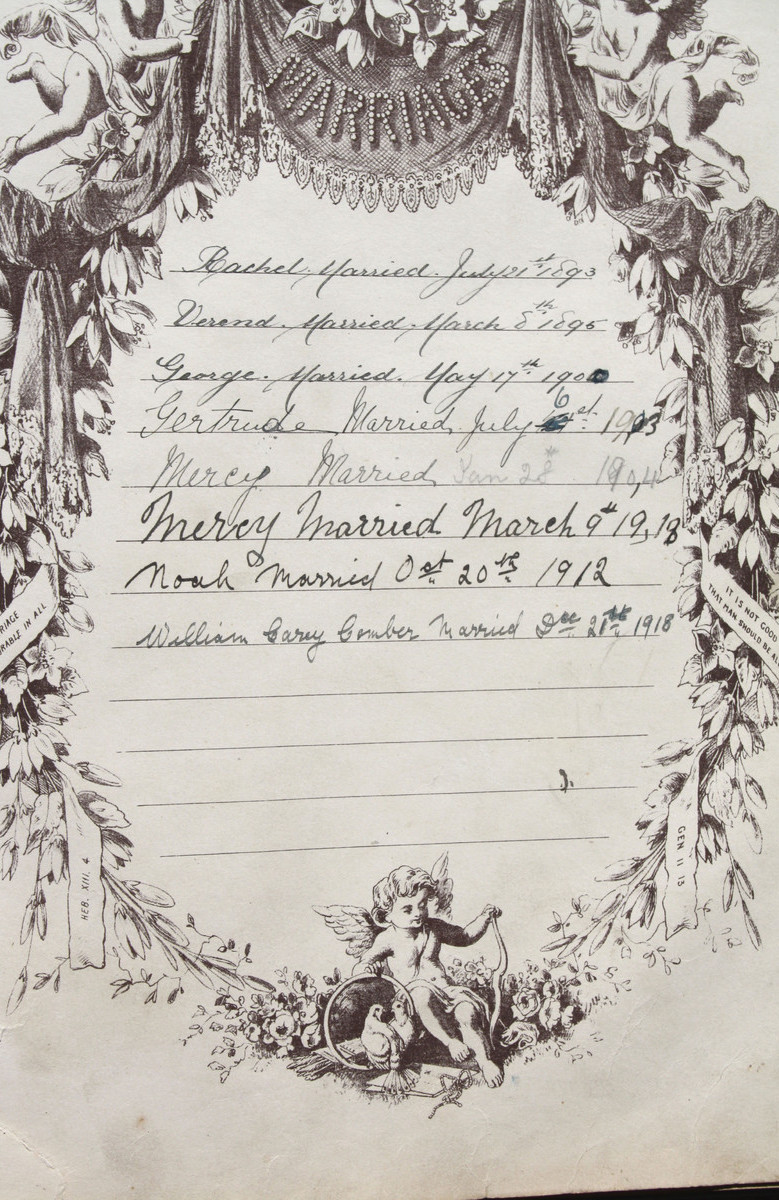 MARRIAGES
Rachel. Married. July 21st 1893
Verend. Married. March 8th 1895
George. Married. May 17th 190
Gertrude Married July 6 1903
Mercy Married Jan 28 1904
Mercy Married March 9th 19,18
Noah Married Oct 20th 1912
William Carey Comber Married Dec 21st 1918
RIAGE
RABLE IN ALL
IT IS NOT GOOD
THAT MAN SHOULD BE
HEB. XIII. 4
GEN II 13